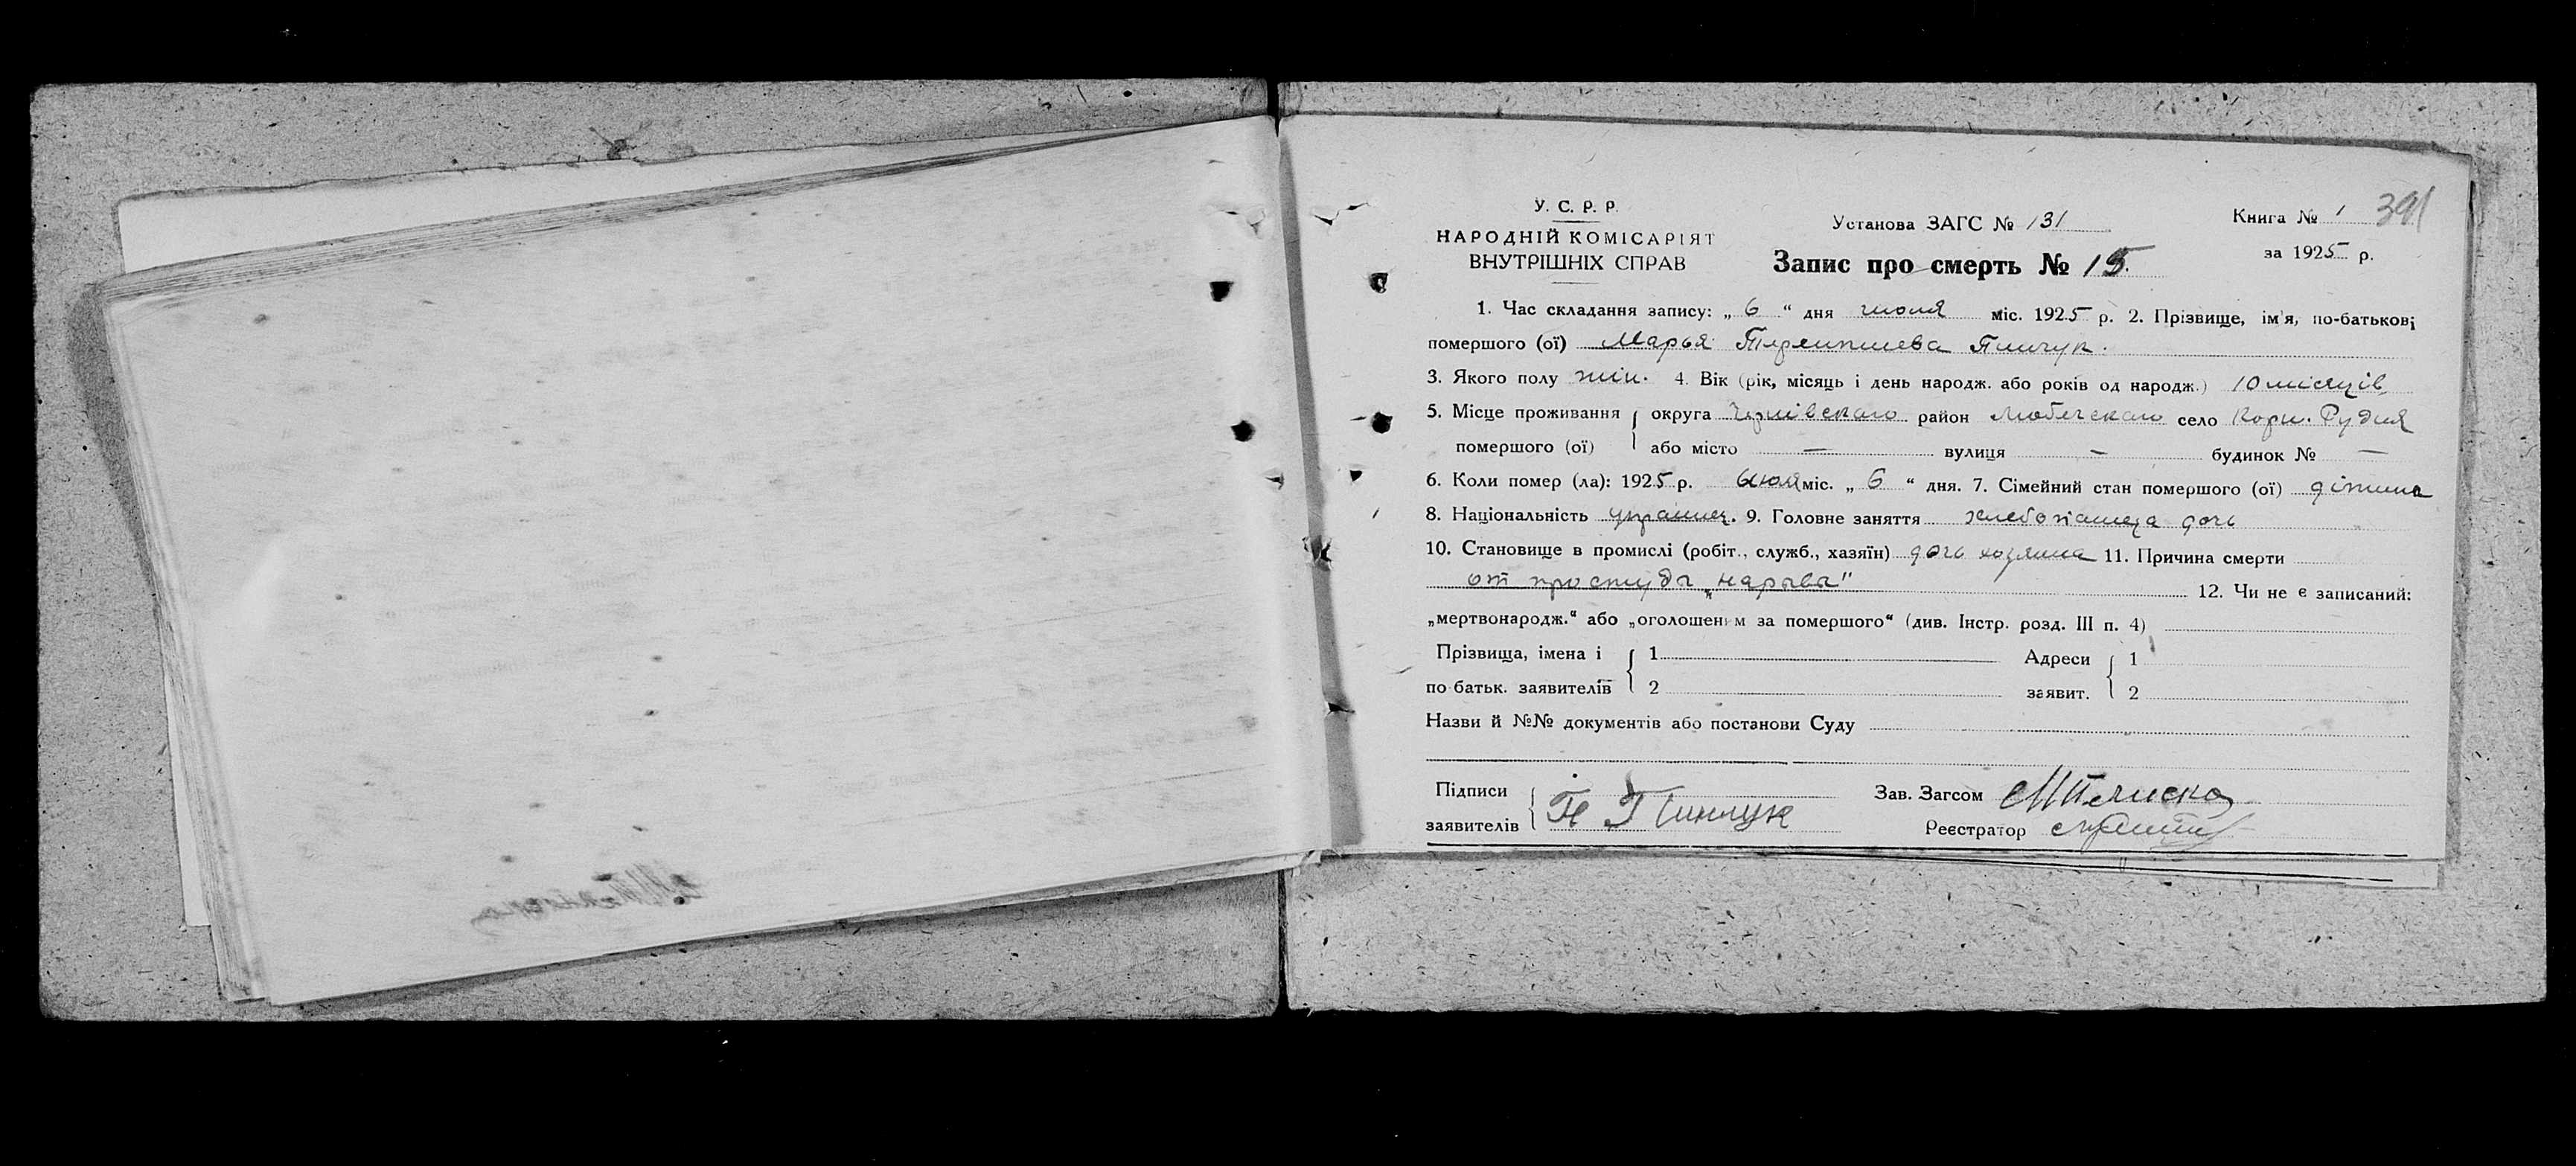 У. С. Р. Р.
НАРОДНІЙ КОМІСАРІЯТ
ВНУТРІШНІХ СПРАВ
Установа ЗАГС № 131
Запис про смерть № 15.
Книга № 1 391
за 1925 р.
1. Час складання запису: „ 6 “ дня июля міс. 1925 р. 2. Прізвище, ім'я, по-батькові
помершого (ої) Марья Пинчук.
3. Якого полу жін. 4. Вік (рік, місяць і день народж. або років од народж.) 10 місяців
5. Місце проживання округа Чернівскаго район Любечскаго село Корн. Рудня
помершого (ої) або місто — вулиця — будинок № —
6. Коли помер (ла): 1925 р. Июля міс. „ 6 “ дня. 7. Сімейний стан помершого (ої) дітина
8. Національність украинец. 9. Головне заняття хлебопашеца дочь
10. Становище в промислі (робіт., служб., хазяїн) дочь хозяина 11. Причина смерти
от простуды „нарывы"
12. Чи не є записаний:
„мертвонародж.“ або „оголошеним за помершого“ (див. Інстр. розд. III п. 4)
Прізвища, імена і 1 Адреси 1
по батьк. заявителів 2 заявит. 2
Назви й №№ документів або постанови Суду
Підписи
заявителів Пинчук
Зав. Загсом
Реєстратор